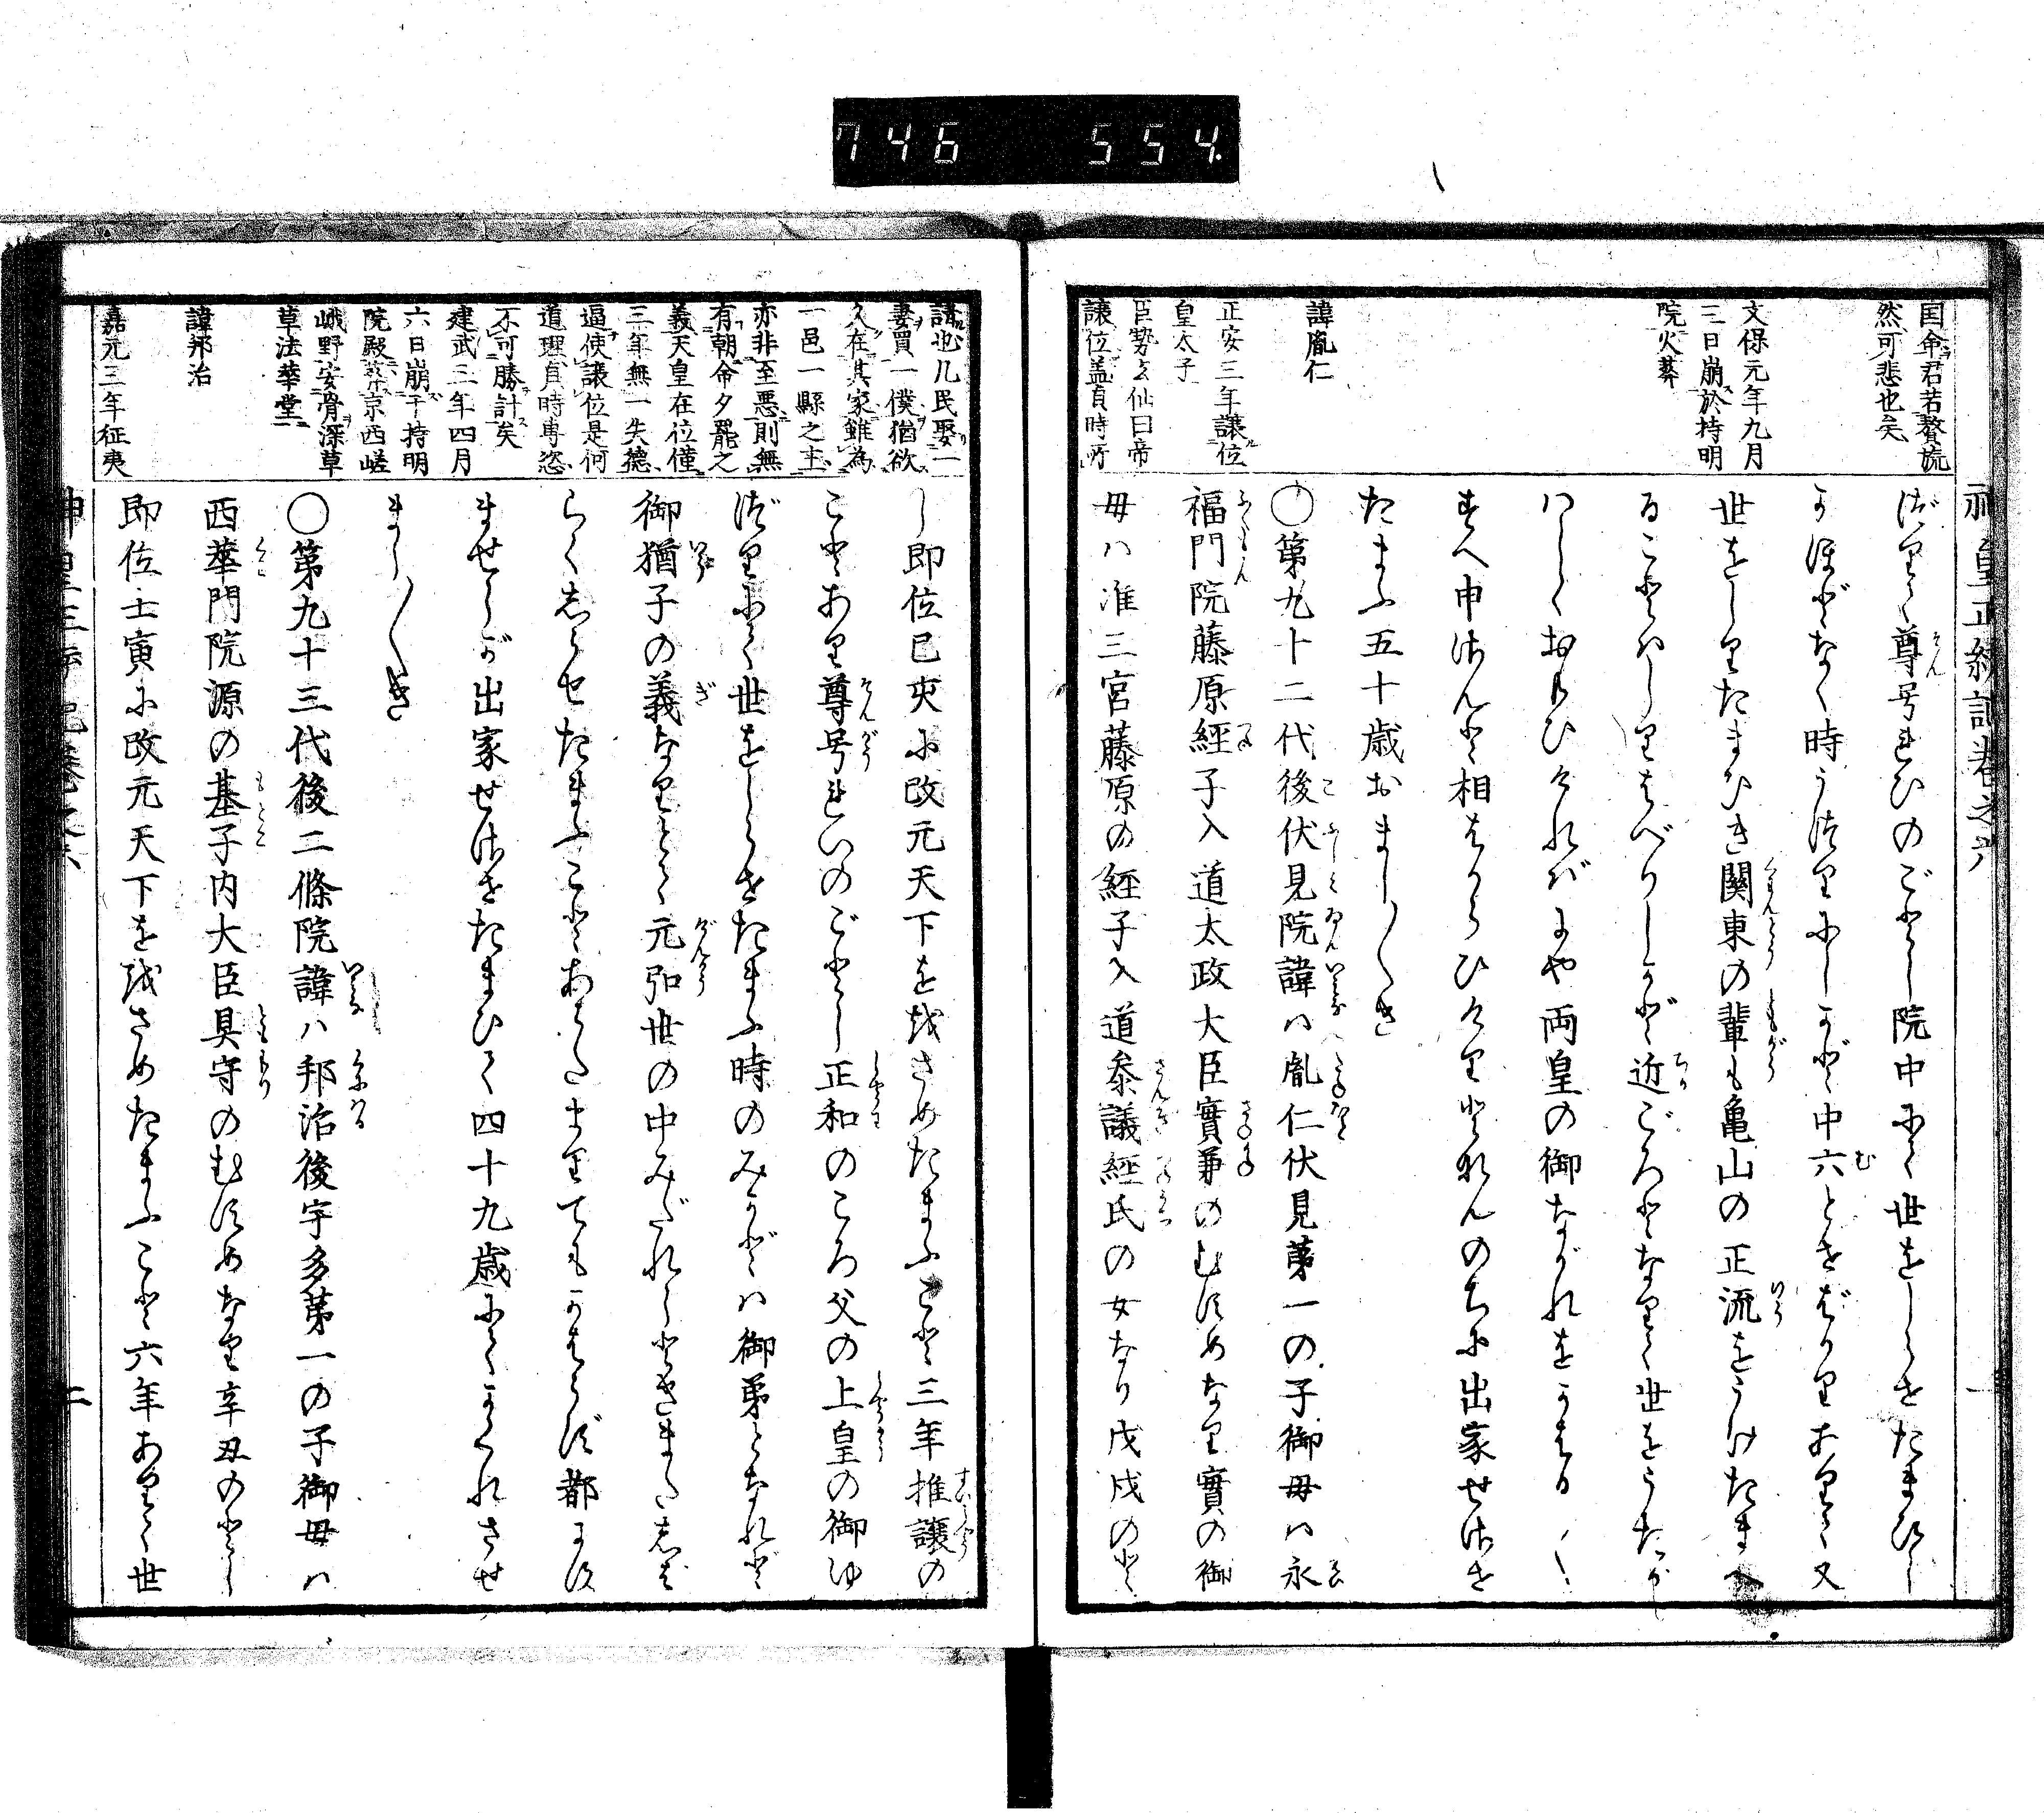 746 554.
神皇正統記巻之六
国命君若贅旒
然可悲也矣
文保元年九月
三日崩於持明
院火葬
諱胤仁
正安三年譲位
皇太子
臣勢玄仙曰帝
譲位盖貞時所
づりて尊号れひのごとし院中にて世をしらせたまひし
がほどなく時うつりにしかど中六とせばかりありて又
世をしりたまひき關東の輩も亀山の正流をうけたまへ
ることはしりはべりしかど近ごろとなりて世をうたがし
はしくおもひけれバにや両皇の御ながれをかはる〱
すへ申さんと相はからひけりとなんのちに出家せさせ
たまふ五十歳おまし〱き
〇第九十二代後伏見院諱ハ胤仁伏見第一の子御母ハ永
福門院藤原經子入道太政大臣實兼のむすめなり實の御
母ハ准三宮藤原の經子入道叅議經氏の女なり戊戌のとし
請也凡民娶一
妻買一僕猶欲
久在其家雖為
一邑一縣之主
亦非至悪則無
有朝命夕罷之
義天皇在位僅
三年無一失德
逼使譲位是何
道理貞時専恣
不可勝計矣
建武三年四月
六日崩于持明
院殿葬京西嵯
峨野安骨深草
草法華堂
諱邦治
嘉元三年征夷
し即位己亥に改元天下を治さめたまふこと三年推譲の
ことあり尊号れいのごとし正和のころ父の上皇の御ゆ
づりにて世をしらせたまふ時のみかどハ御弟となれど
御猶子の義なりとぞ元弘世の中みだれしときまたしば
らくしらせたまふことあらたまりてもかはらず都にす
ませしが出家せさせたまひて四十九歳にてかくれさせ
まし〱き
〇第九十三代後二條院諱ハ邦治後宇多第一の子御母ハ
西華門院源の基子内大臣具守のむすめなり辛丑のとし
即位壬寅に改元天下を治さめたまふこと六年ありて世